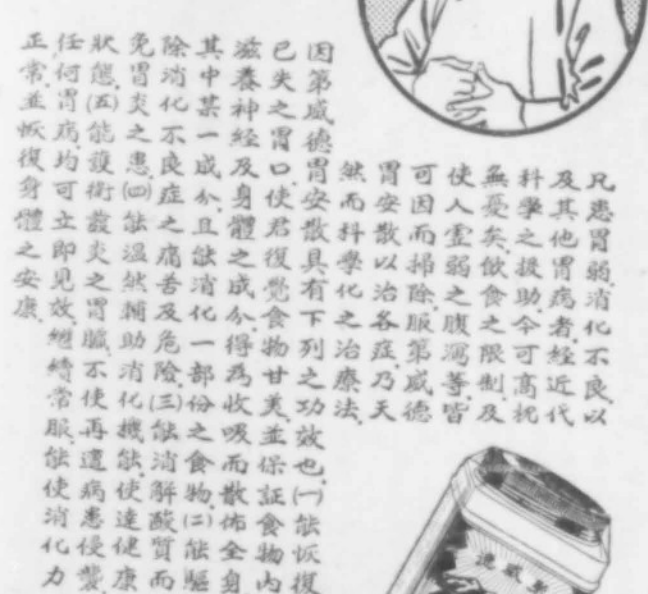 凡患胃弱消化不良以
及其他胃病者經近代
科學之援助今可高枕
無憂矣飲食之限制及
使人虛弱之腹瀉等皆
可因而掃除服第威德
胃安散以治各症乃天
然而科學化之治療法
因第威德胃安散具有下列之功效也(一)能恢復
已失之胃口使君復覺食物甘美並保証食物內
滋養神經及身體之成分得為收吸而散佈全身
其中某一成分且能消化一部份之食物(二)能驅
除消化不良症之痛苦及危險(三)能消解酸質而
免胃炎之患(四)能溫然輔助消化機能使達健康
狀態(五)能護衛發炎之胃臟不使再遭病患侵襲
任何胃病均可立即見效繼續常服能使消化力
正常並恢復身體之安康
德威第